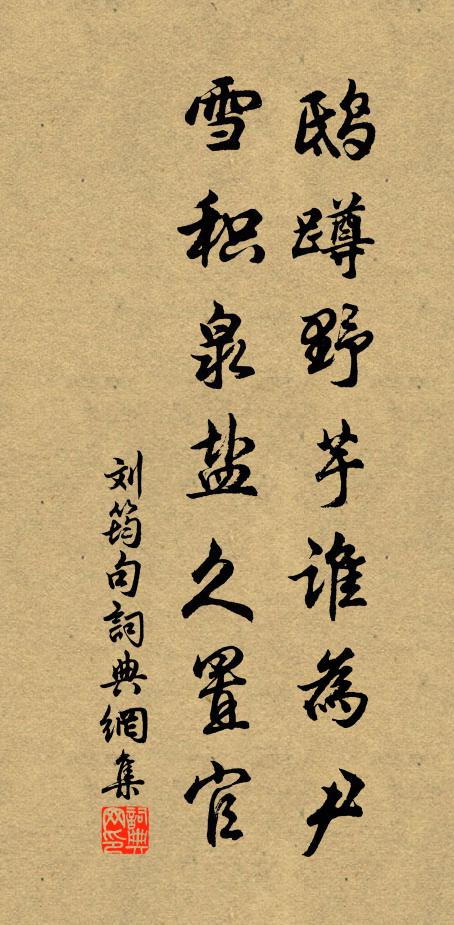 鸱蹲野芋谁為尹
雪积泉盐久置官
刘筠句詞典網集
詞典网印